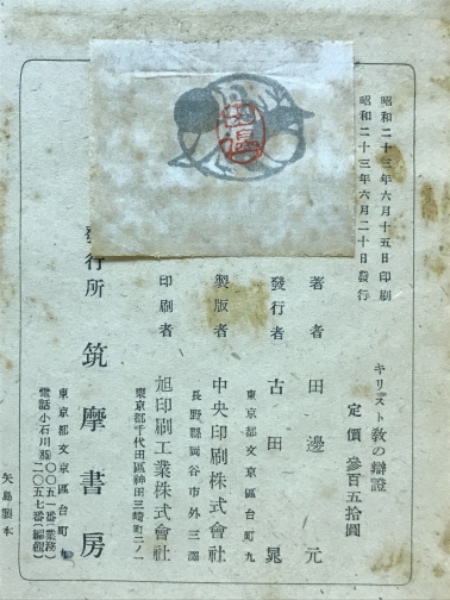 昭和二十三年六月十五日印刷
昭和二十三年六月二十日發行
キリスト教の辯證
定價 參百五拾圓
著者 田邊元
發行者 古田晁
東京都文京區台町九
製版者 中央印刷株式會社
長野縣岡谷市外三澤
印刷者 旭印刷工業株式會社
東京都千代田區神田三崎町二ノ一
發行所 筑摩書房
東京都文京區台町九
電話小石川(85)〇〇五一番(業務)
二〇五七番(編輯)
矢島製本
田邊